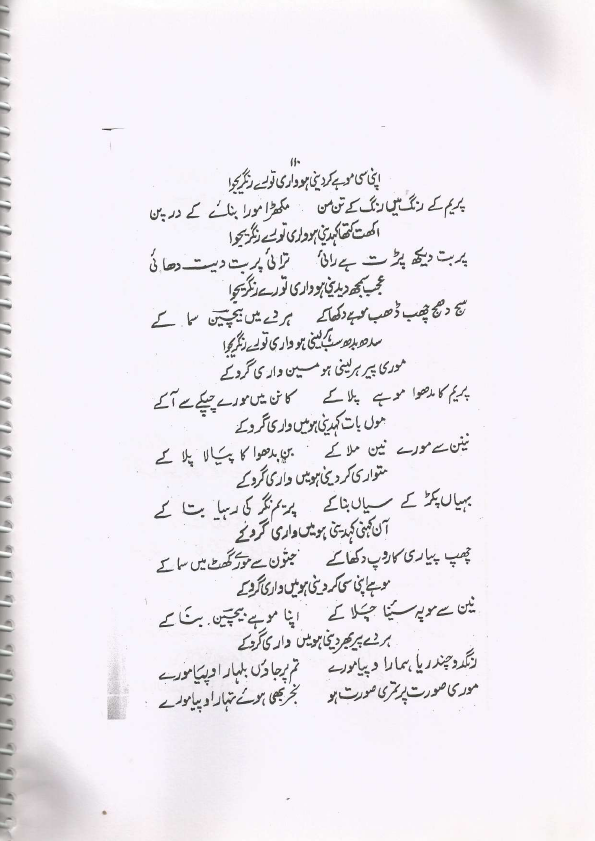 ۱۱۰
اپنی سی موہے کر دینی ہو واری تورے رنگریجوا
پریم کے رنگ میں رنگ کے تن من مکھڑا مورا بنائے کے درپن
اکھت کتھا کہدینی ہو واری تورے رنگریجوا
پربت دیکھ پڑت ہے رائی ترائی پربت دیت دھائی
عجب سمجھ دیدینی ہو واری تورے رنگریجوا
سج دھج چھب ڈھب موہے دکھاکے ہردے میں بیچین سما کے
سدھ بدھ سب ہر لینی ہو واری تورے رنگریجوا
موری پیر ہر لینی ہو میں واری گرو کے
پریم کا مدھوا موہے پلا کے کانن میں مورے چپکے سے آکے
مول بات کہدینی ہو میں واری گرو کے
نینن سے مورے نین ملا کے بن بدھوا کا پیالا پلا کے
متواری کر دینی ہو میں واری گرو کے
بہیاں پکڑ کے سیاں بنا کے پریم نگر کی رہیا بتا کے
آن کہنی کہدینی ہو میں واری گرو کے
چھپ پیاری کا روپ دکھا کے جتون سے مورے گھٹ میں سما کے
موہے اپنی سی کر دینی ہو میں واری گرو کے
نین سے موپہ سینا چلا کے اپنا موہے بیچین بنا کے
ہردے پیر بھر دینی ہو میں واری گرو کے
رنگدو چندریا ہمارا و پیا مورے تم پر جاؤں بلہارا و پیا مورے
موری صورت پر تمری صورت ہو نجر بھی ہوئے تہارا و پیا مورے